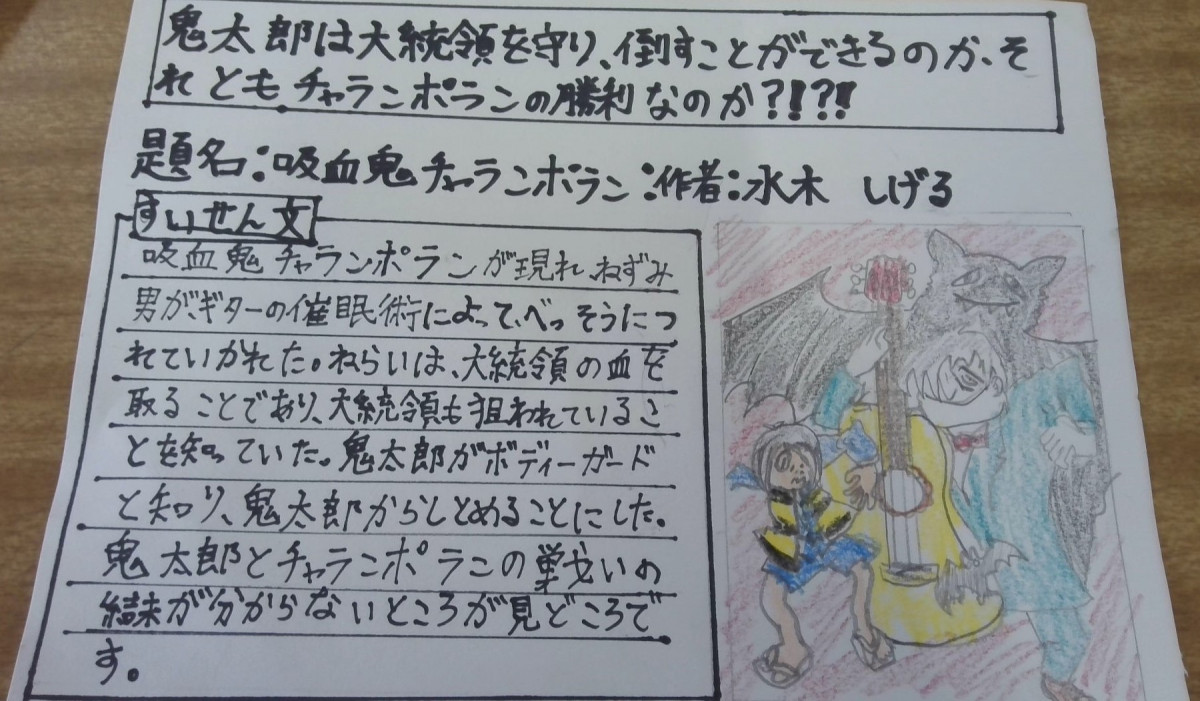 鬼太郎は大統領を守り、倒すことができるのか、そ
れともチャランポランの勝利なのか?!?!
題名:吸血鬼チャランポラン:作者:水木 しげる
すいせん文
吸血鬼チャランポランが現れ、ねずみ
男が、ギターの催眠術によって、べっそうにつ
れていかれた。ねらいは、大統領の血を
取ることであり、大統領も狙われているこ
とを知っていた。鬼太郎がボディーガード
と知り、鬼太郎からしとめることにした。
鬼太郎とチャランポランの戦いの
結末が分からないところが見どころで
す。